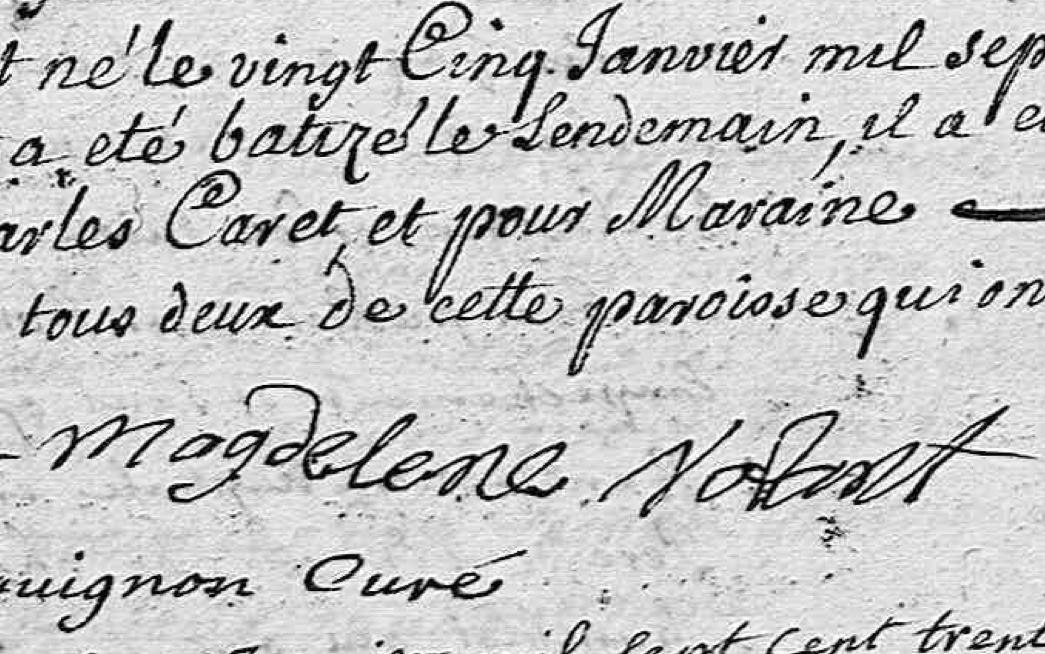 né le vingt Cinq Janvier mil sep
a eté batizé le Lendemain, il a e
arles Caret, et pour Maraine
tous deux de cette paroisse qui on
Magdelene
uignon Curé
il sept cent trent